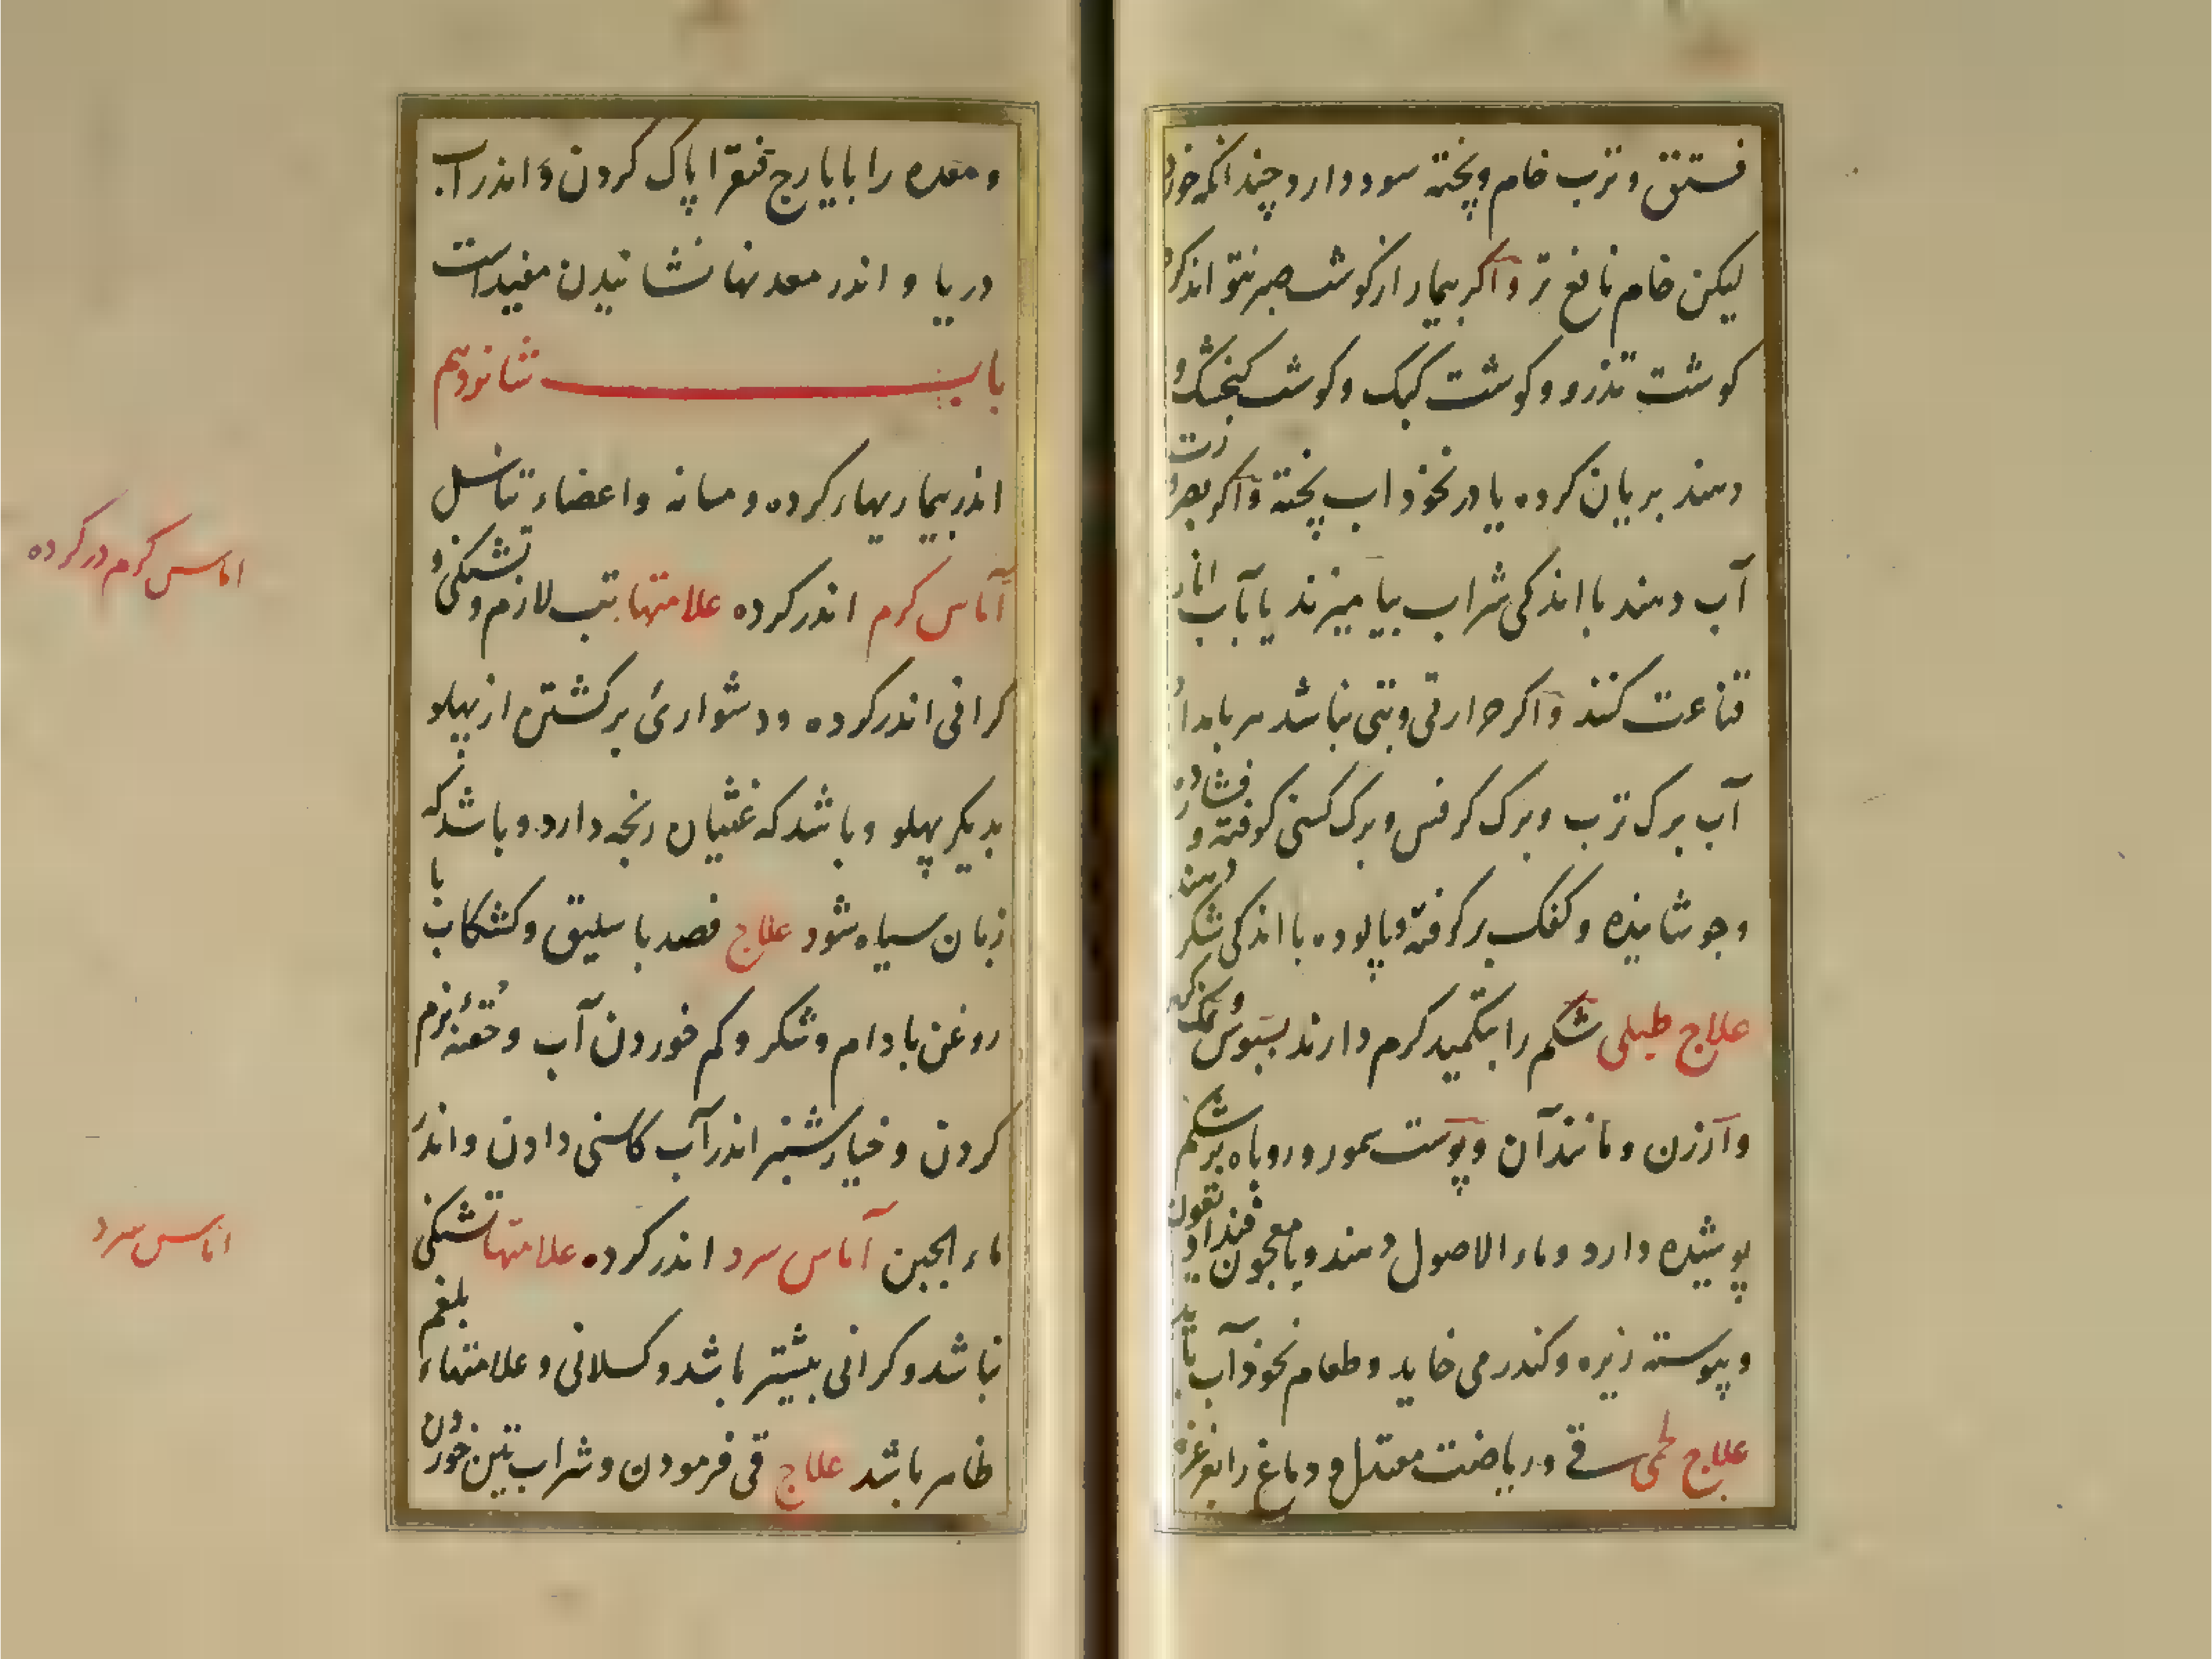 فستق و ترب خام و پخته سود دارد چندانکه خورد
لیکن خام نافع تر و اکر بیمار از کوشت صبر نتواند کرد
کوشت تذرو و کوشت کبک و کوشت کنجشک و
دهند بریان کرده یا در نخوذاب پخته و اکر بضرورت
آب دهند با اندکی شراب بیامیزند یا بآب انار
قناعت کنند و اکر حرارتی و تبی نباشد هر بامداد
آب برک ترب و برک کرفس و برک کسنی کوفته و فشارده
و جوشانیذه و کفک برکرفته و پالوده با اندکی شکر دهند
علاج طبلی شکم را بتکمید کرم دارند بسبوس و نمک کرم
و ارزن و مانند آن و پوست سمور و روباه بر شکم
پوشیده دارد و ماء الاصول دهند و با معجون قنداد یقون
و پیوسته زیره و کندر می خاید و طعام نخوذآب باید
علاج لحمی قی و ریاضت معتدل و دماغ را بغرغره
و معده را بایارج فیقرا پاک کردن و اندر آب
دریا و اندر معدنها نشانیدن مفیداست
باب شانزدهم
اندر بیماریهار کرده و مسانه و اعضاء تناسل
آماس کرم اندر کرده علامتها تب لازم و تشنکی و
کرانی اندر کرده و دشواریٔ برکشتن از پهلو
بدیکر پهلو و باشد که غثیان رنجه دارد و باشد که
زبان سیاه شود علاج فصد باسلیق و کشکاب با
روغن بادام و شکر و کم خوردن آب و حقنهٔ نرم
کردن و خیارشنبر اندر آب کاسنی دادن و اندر
ماء الجبن آماس سرد اندر کرده علامتها تشنکی
نباشد و کرانی بیشتر باشد و کسلانی و علامتهاء بلغم
ظاهر باشد علاج قی فرمودن و شراب تین خوردن
اماس کرم در کرده
اماس سرد